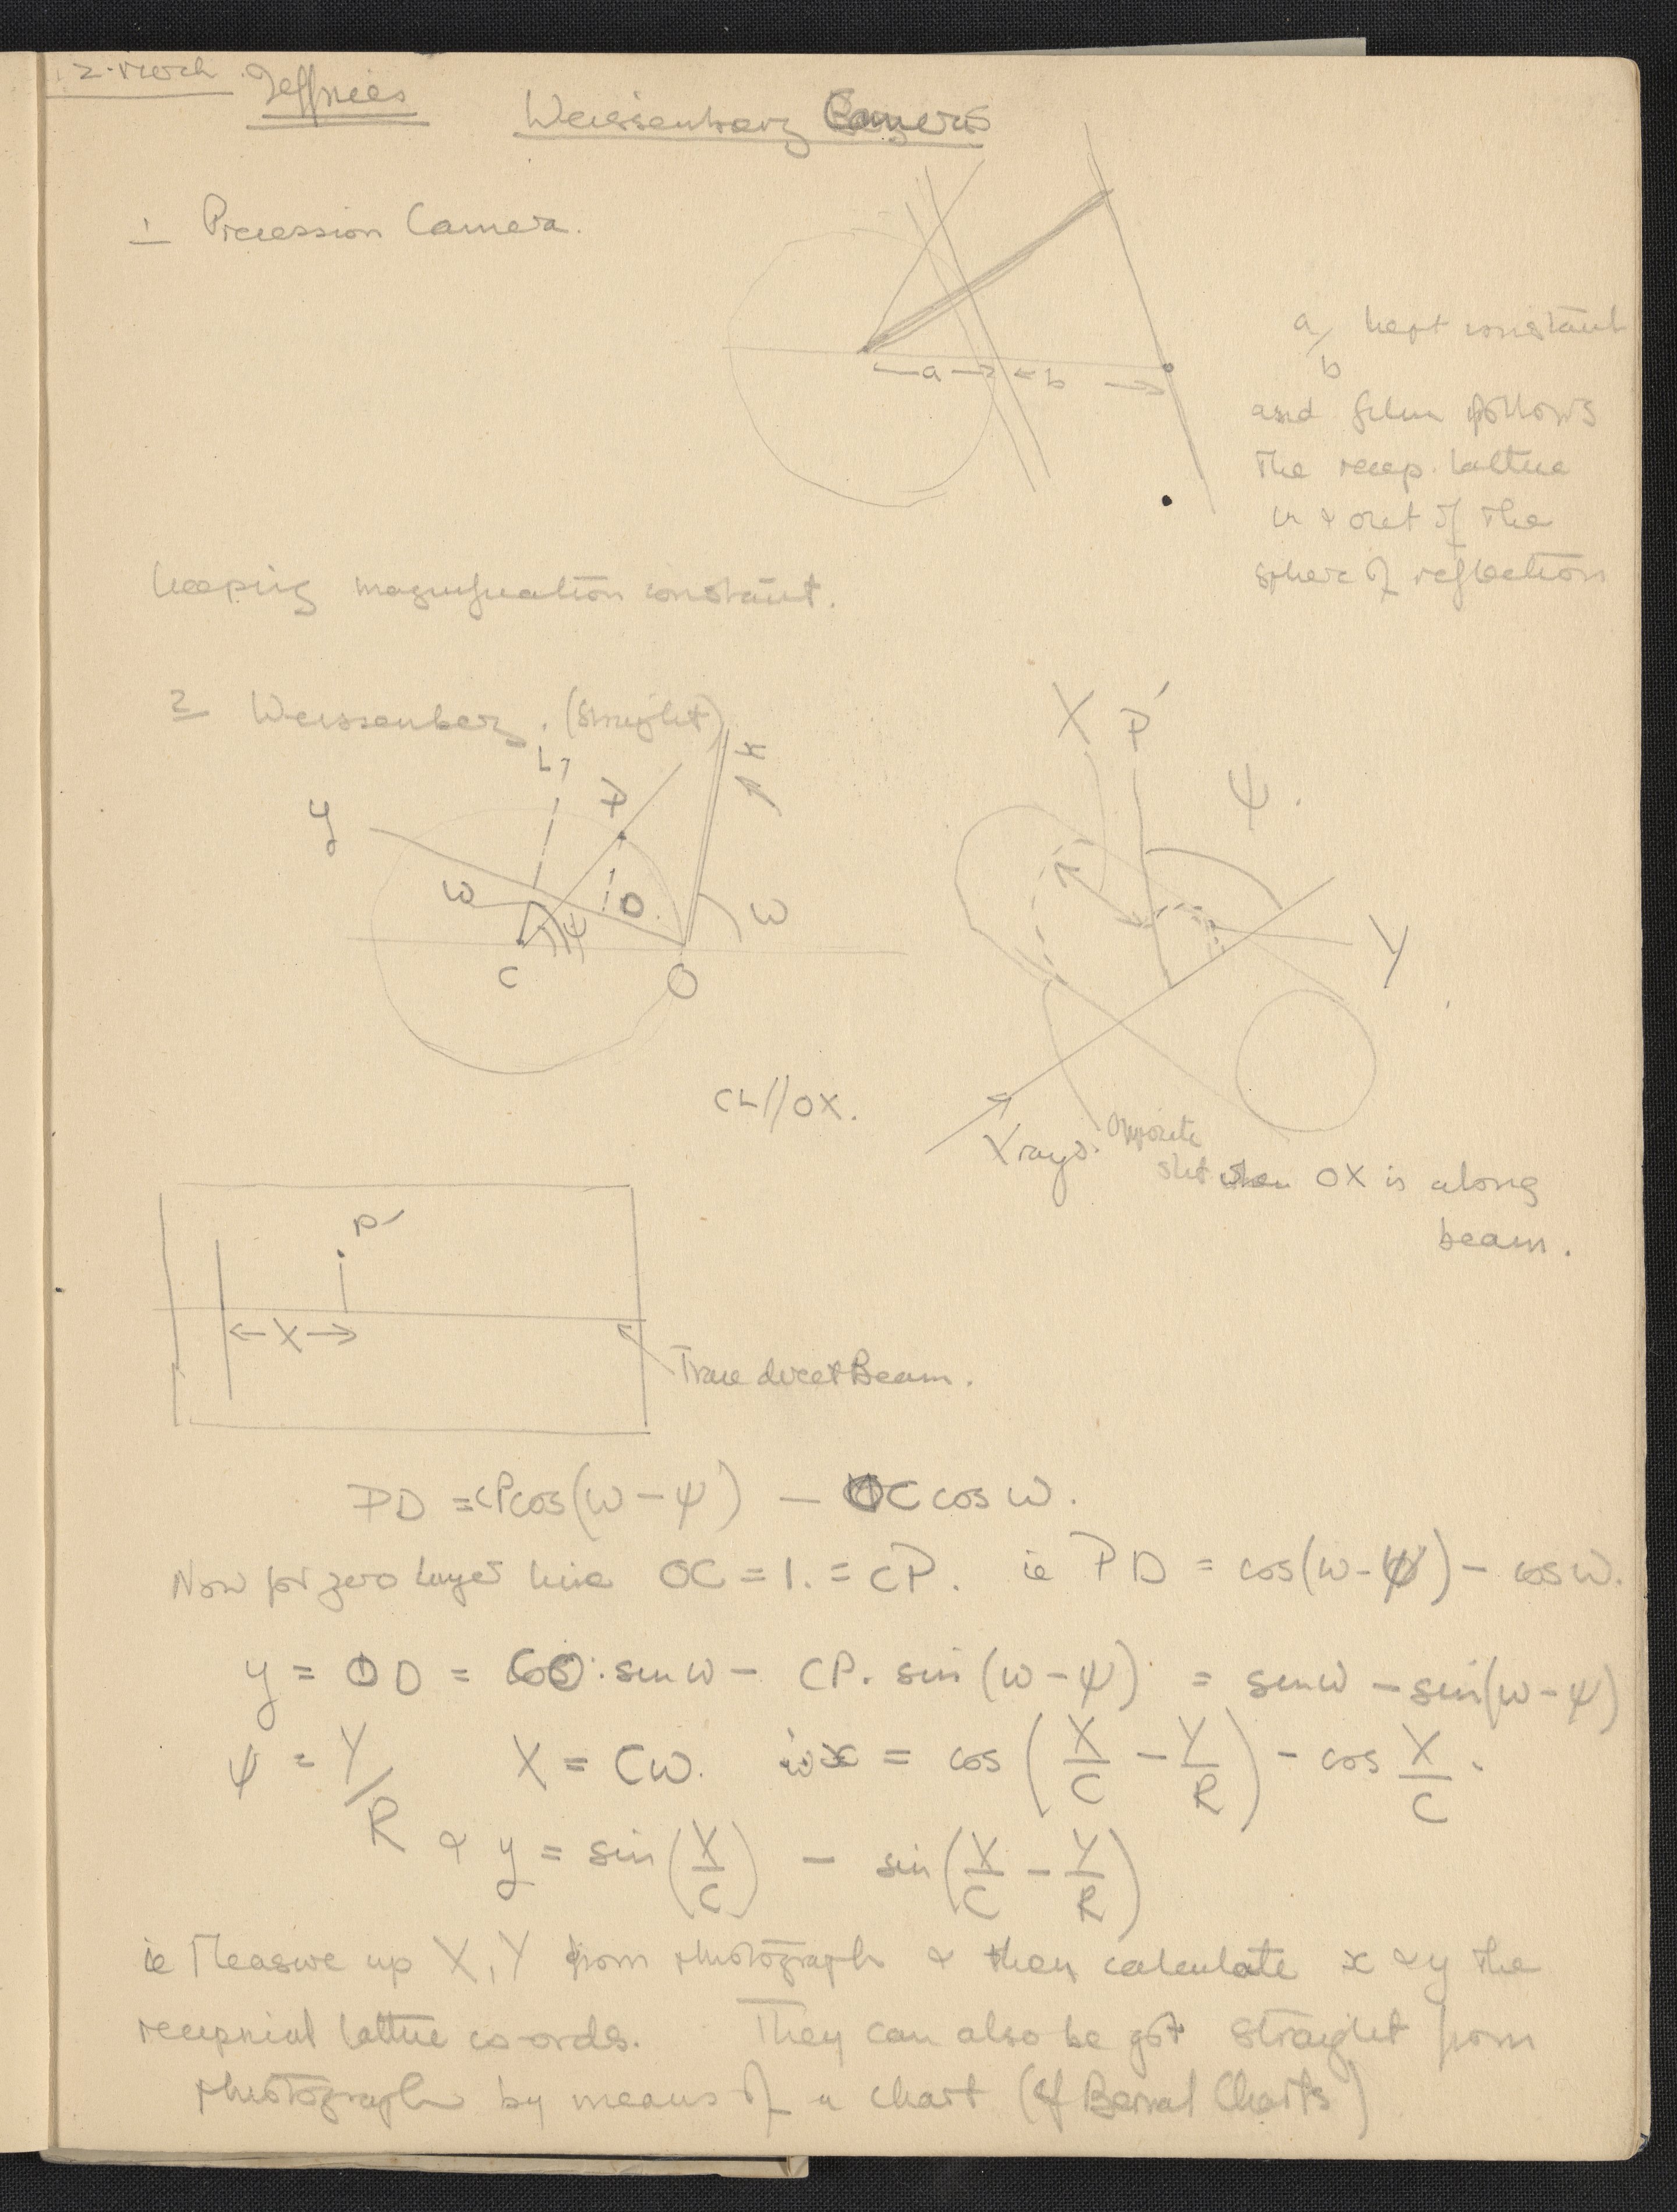 2. March Jeffries Weissenberg Camera
1 Precession Camera.
← a → ← b →
a/b kept constant
and film follows
the recip. lattice
in & out of the
sphere of reflection
keeping magnification constant.
2 Weissenberg. (Straight)
L
P
x
y
ω
D
ψ
ω
C
O
CL//OX.
X P′
ψ.
Y
X rays.
Opposite
slit when OX is along
beam.
P′
← X →
Trace direct Beam.
PD = CP cos(ω − ψ) − OC cos ω.
Now for zero layer line OC = 1. = CP. ie PD = cos(ω − ψ) − cos ω.
y = OD = CO. sin ω − CP. sin (ω − ψ) = sin ω − sin(ω − ψ)
ψ = Y/R X = Cω. x = cos (X/C − Y/R) − cos X/C.
& y = sin (X/C) − sin (X/C − Y/R)
ie Measure up X, Y from photograph & then calculate x & y the
reciprical lattice co-ords. They can also be got straight from
photograph by means of a chart (cf Bernal Charts)